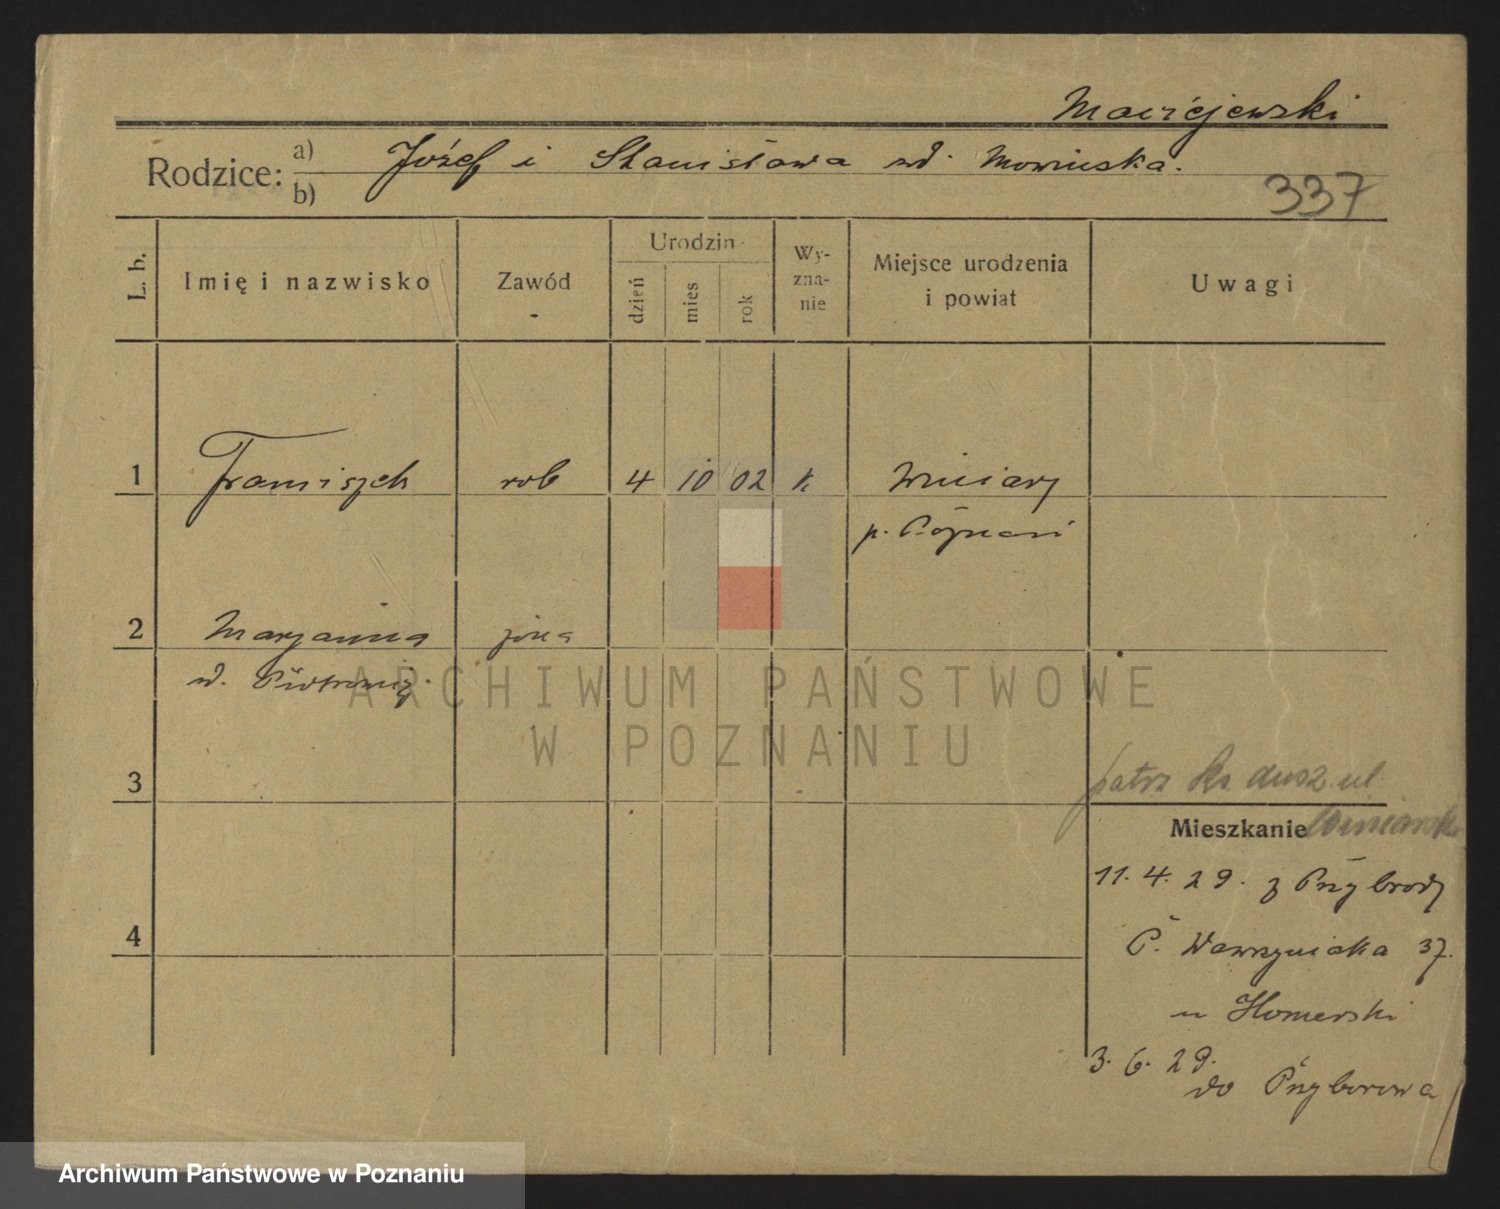 Maciejewski
Rodzice: a) Józef i Stanisława ud. Nowinska.
b)
337
L. b. Imię i nazwisko Zawód Urodzin Wy-zna-nie Miejsce urodzenia i powiat Uwagi
dzień mies rok
1 Franciszek rob 4 10 02 k Winiary
p. Poznań
2 Maryanna żona
ud. Piotrowicz
3
patrz ks dusz. ul
Mieszkanie Winiarska
11. 4. 29. z Przybrody
4
P. Wawrzyniaka 37.
u Homerski
3. 6. 29.
do Przyborowa
ARCHIWUM PAŃSTWOWE
W POZNANIU
Archiwum Państwowe w Poznaniu